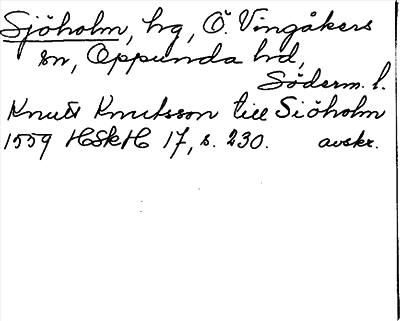 Sjöholm, hg, Ö. Vingåkers
sn, Oppunda hd,
Söderm. l.
Knut Knutsson till Siöholm
1559 HSkH 17, s. 230. avskr.